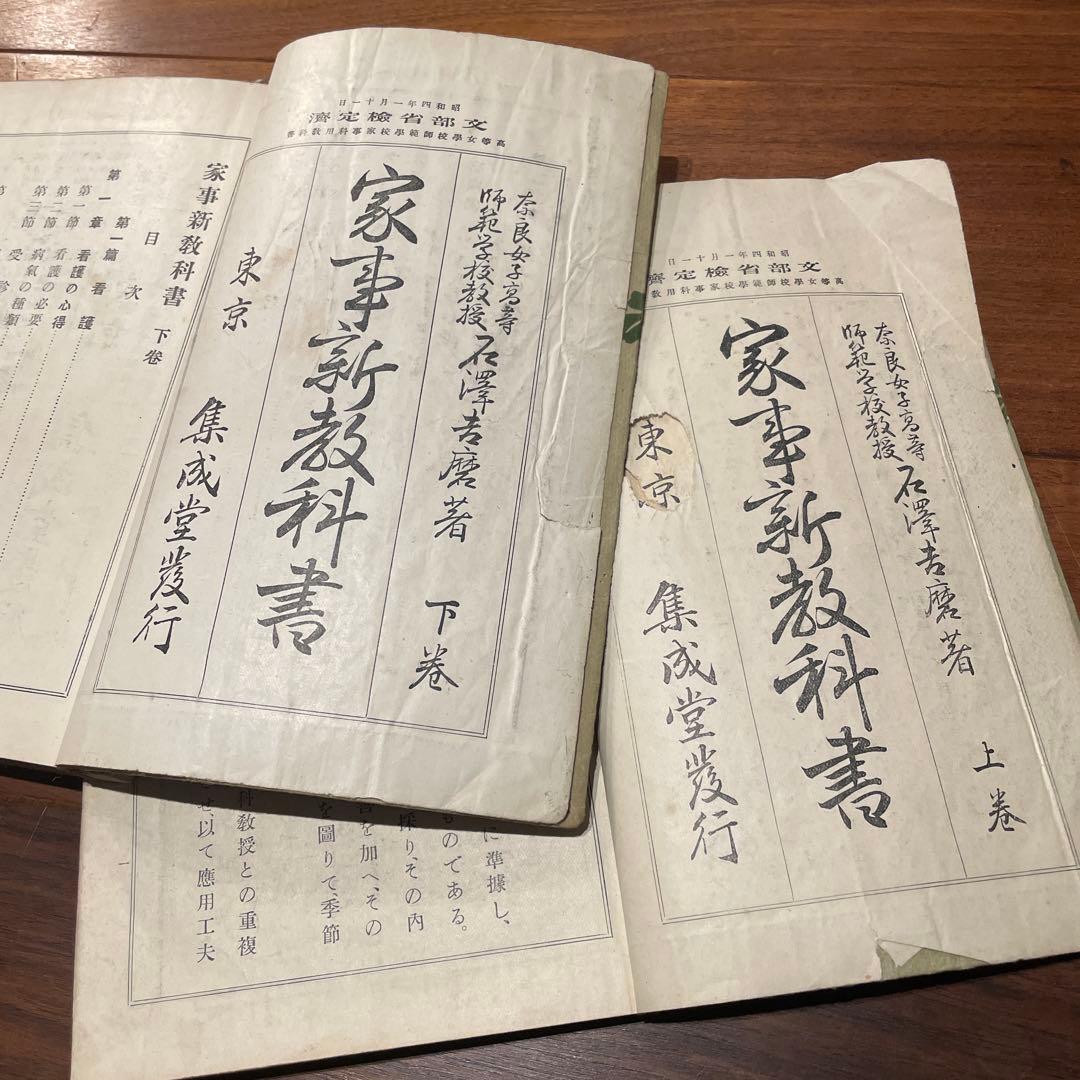 昭和四年一月十一日
文部省檢定濟
高等女學校師範學校家事科用教科書
奈良女子高等
師範学校教授
石澤吉磨著
下卷
家事新教科書
東京
集成堂發行
家事新教科書 下卷
目次
第一篇 看護
第一章 看護の心得
第一節
第二節 病氣の必要
第三節
昭和四年一月十一日
文部省檢定濟
高等女學校師範學校家事科用教
奈良女子高等
師範学校教授
石澤吉磨著
上卷
家事新教科書
東京
集成堂發行
に準據し、
ものである。
採り、その內
を加へ、その
を圖りて、季節
科教授との重複
せ、以て應用工夫